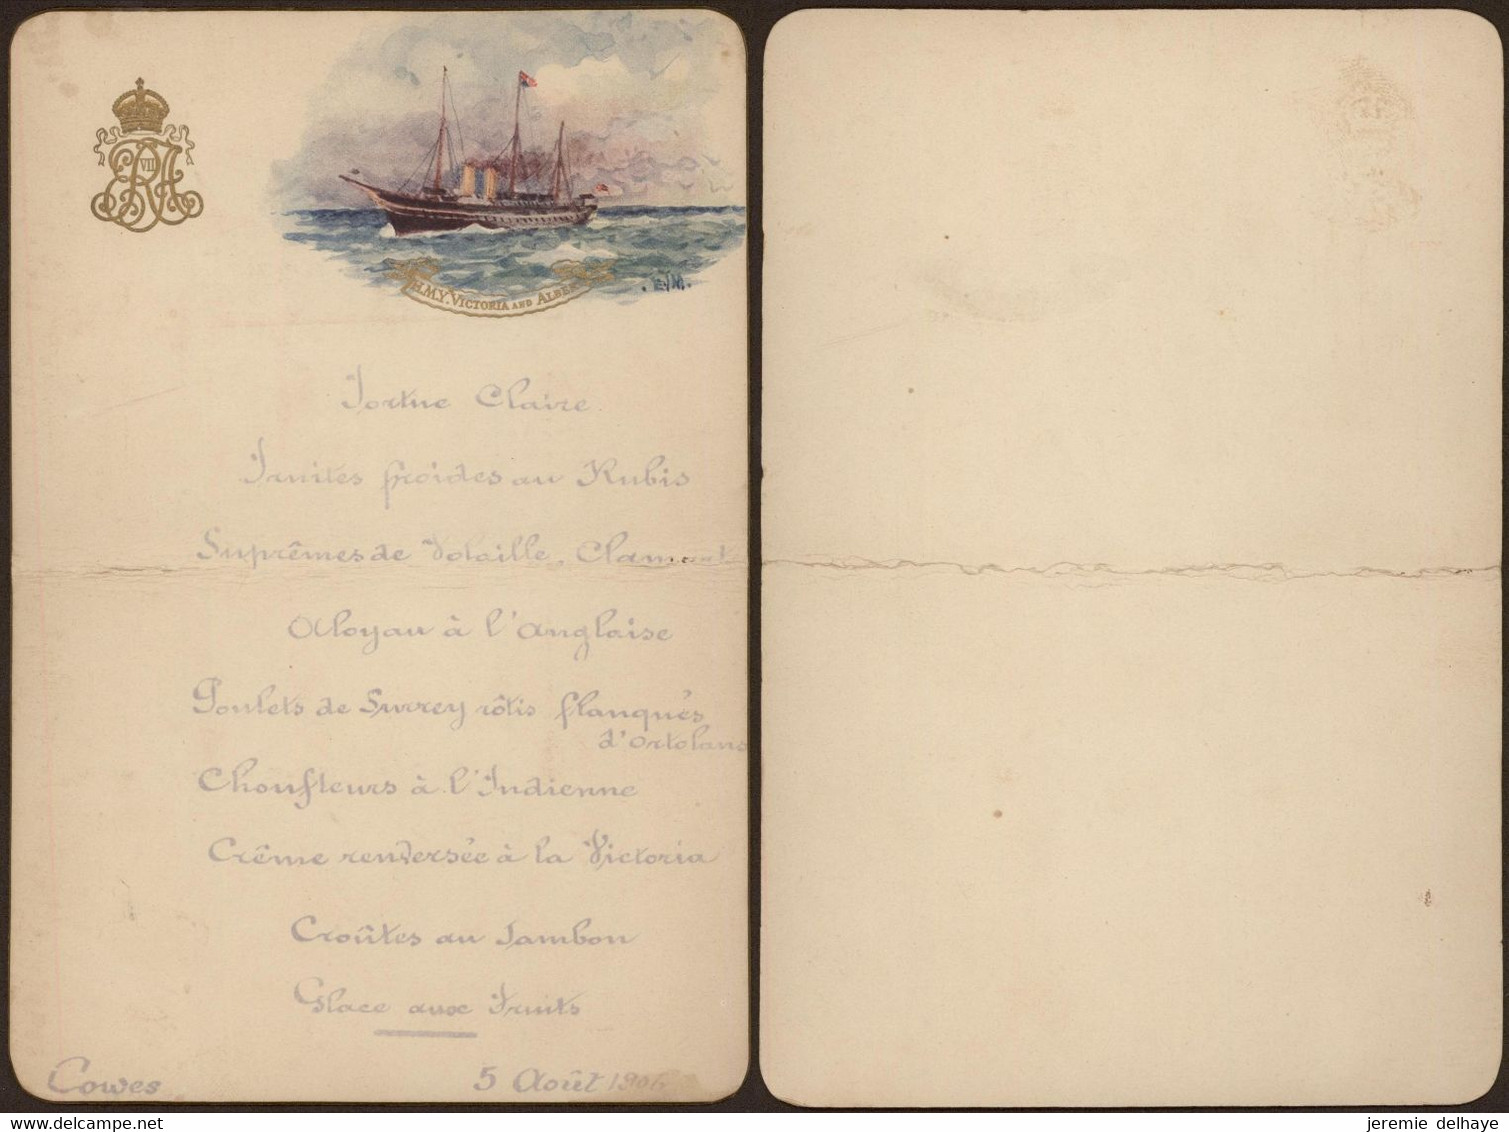 VII
H.M.Y. VICTORIA AND ALBERT
E.M.
Tortue Claire
Truites froides au Rubis
Suprêmes de Volaille, Clamart
Aloyau à l'Anglaise
Poulets de Surrey rôtis flanqués
d'Ortolans
Choufleurs à l'Indienne
Crême renversée à la Victoria
Croûtes au Jambon
Glace aux Fruits
Cowes
5 Août
©delcampe.net
jeremie delhaye